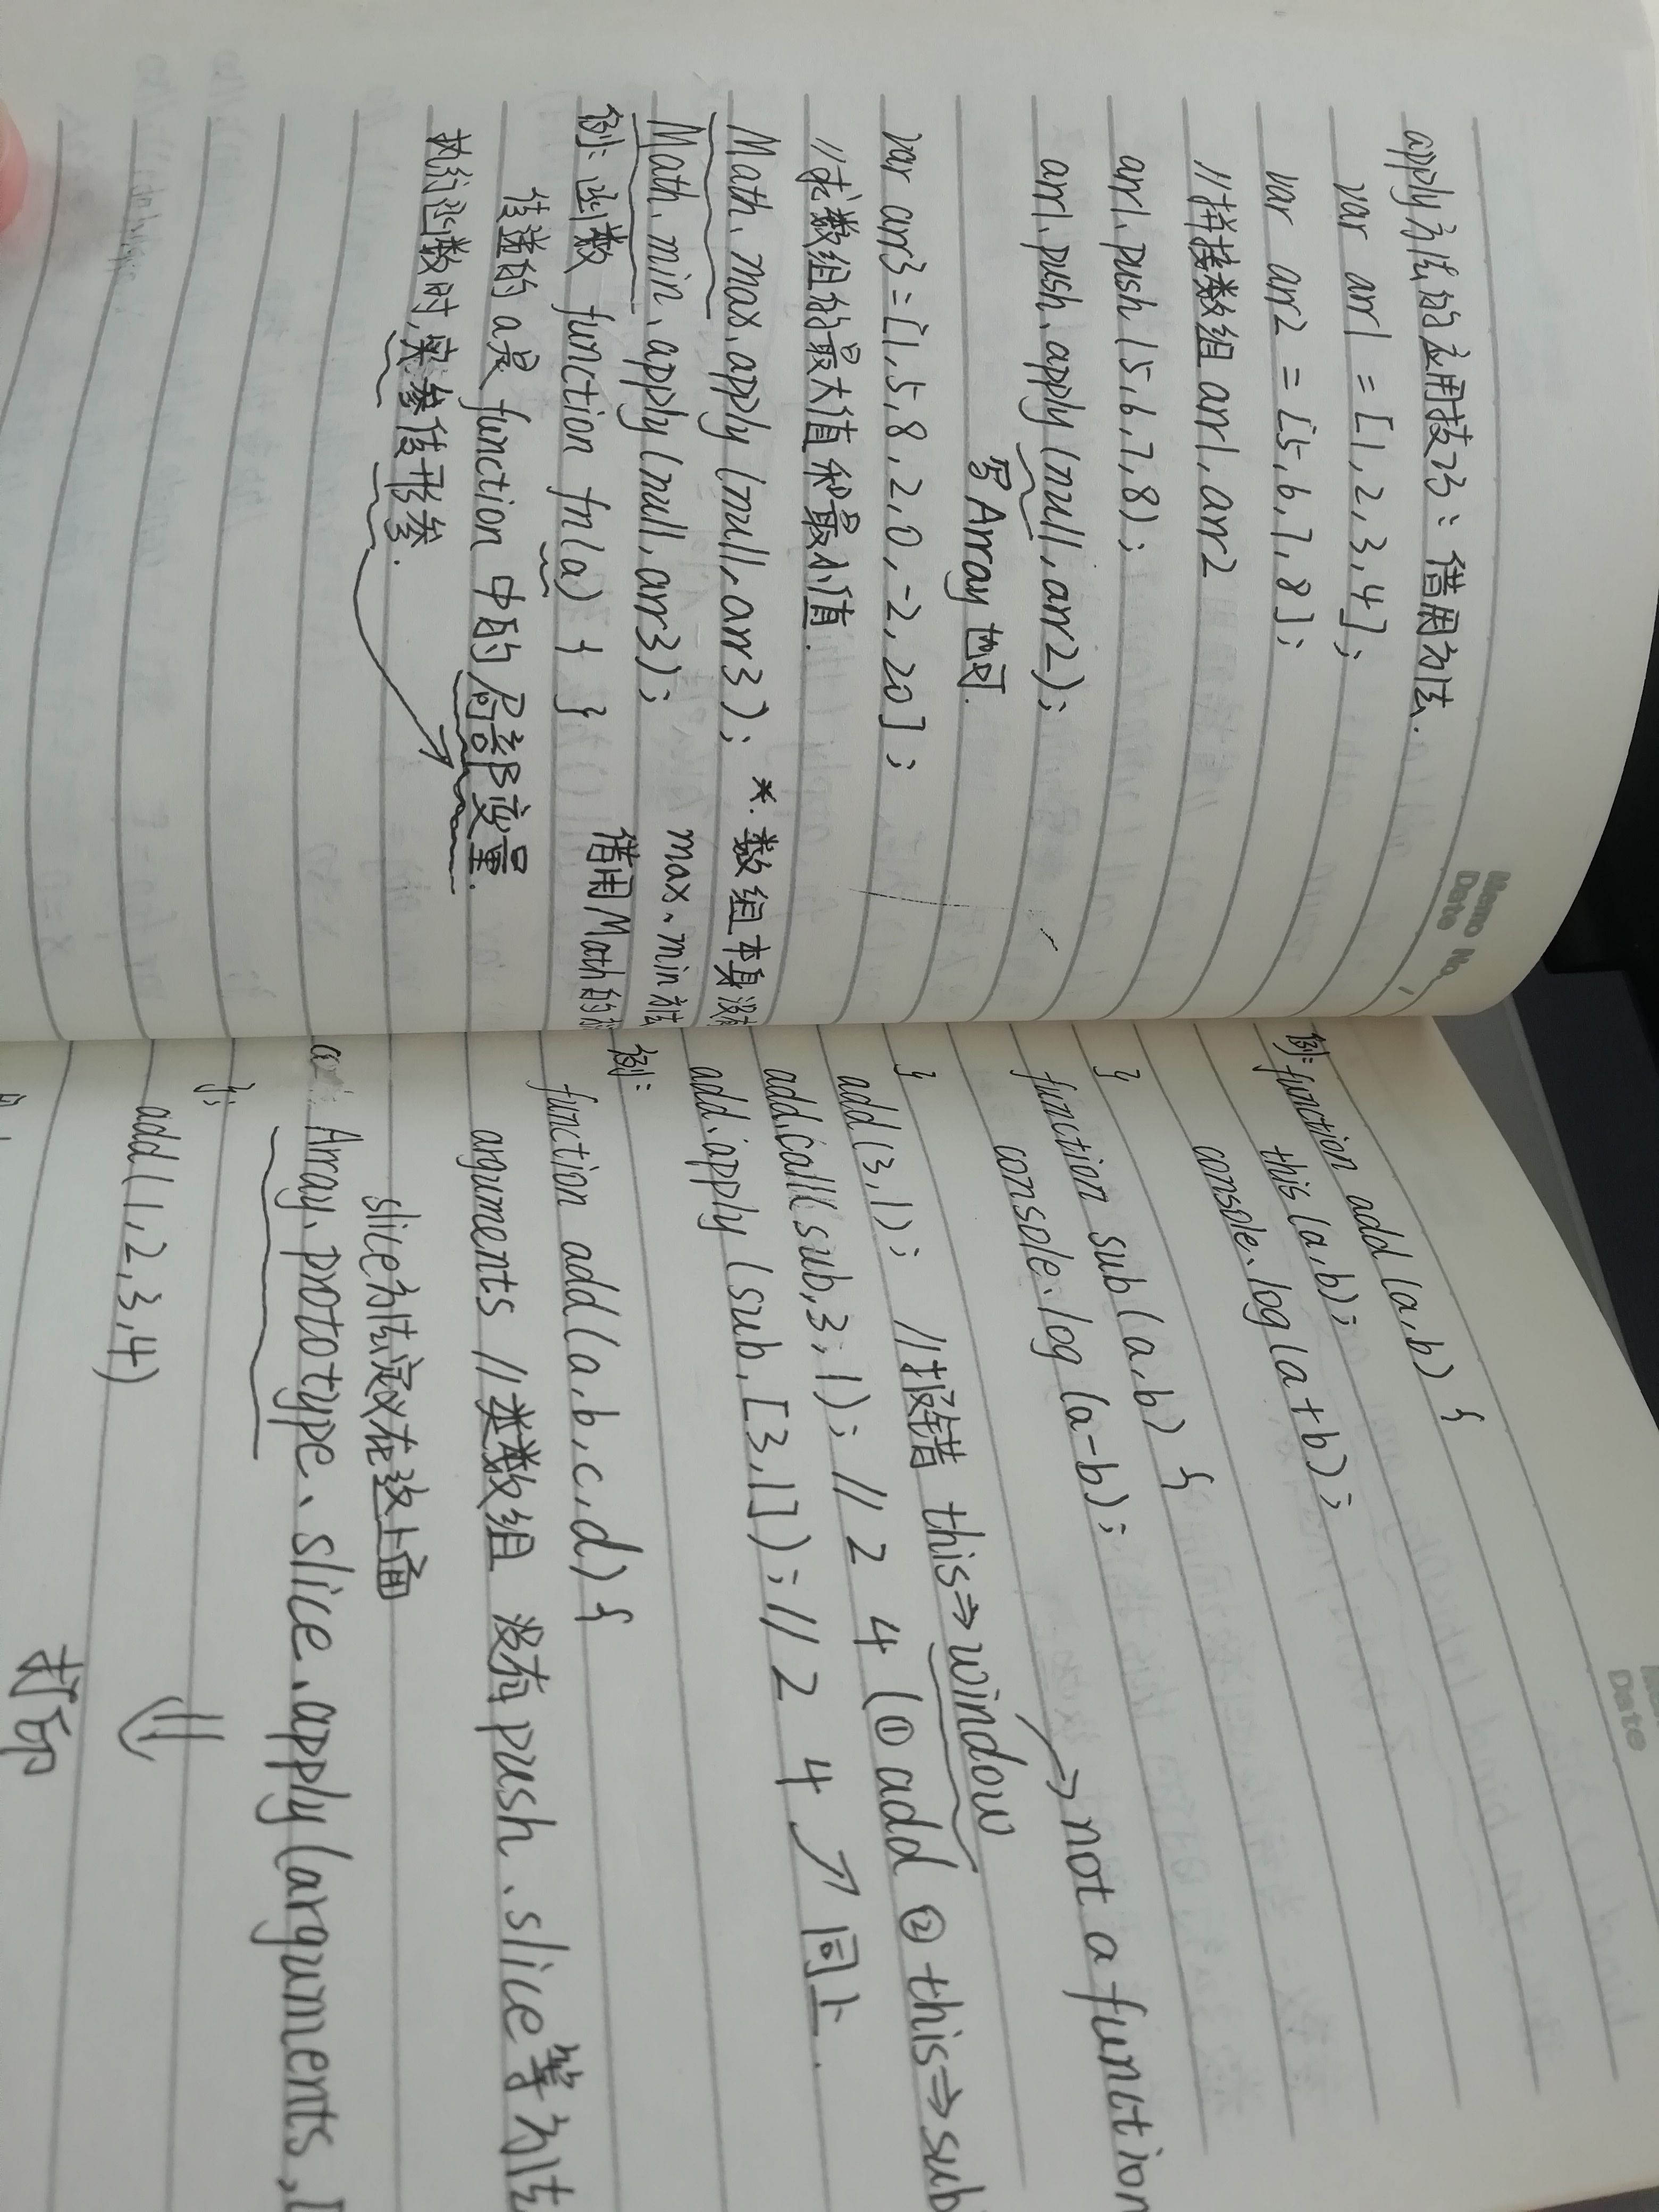 Memo No.
Date
apply方法的应用技巧：借用方法.
var arr1 = [1,2,3,4];
var arr2 = [5,6,7,8];
//拼接数组 arr1, arr2
arr1.push(5,6,7,8);
arr1.push.apply(null,arr2);
写Array也可.
var arr3=[1,5,8,2,0,-2,20];
//求数组的最大值和最小值.
Math.max.apply(null,arr3); *.数组本身没有
Math.min.apply(null,arr3); max、min方法
借用Math的
例：函数 function fn(a) { }
传递的a是function中的局部变量.
执行函数时,实参传形参.
Date
例：function add(a,b) {
this(a,b);
console.log(a+b);
}
function sub(a,b) {
console.log(a-b);
}
not a function
add(3,1); //报错 this⇒window
add.call(sub,3,1); // 2 4 (① add ② this⇒sub
add.apply(sub,[3,1]); // 2 4 ↗同上.
例：
function add(a,b,c,d){
arguments //类数组 没有push、slice等方法
slice方法定义在这上面
Array.prototype.slice.apply(arguments,[
};
add(1,2,3,4) ⇒
打印